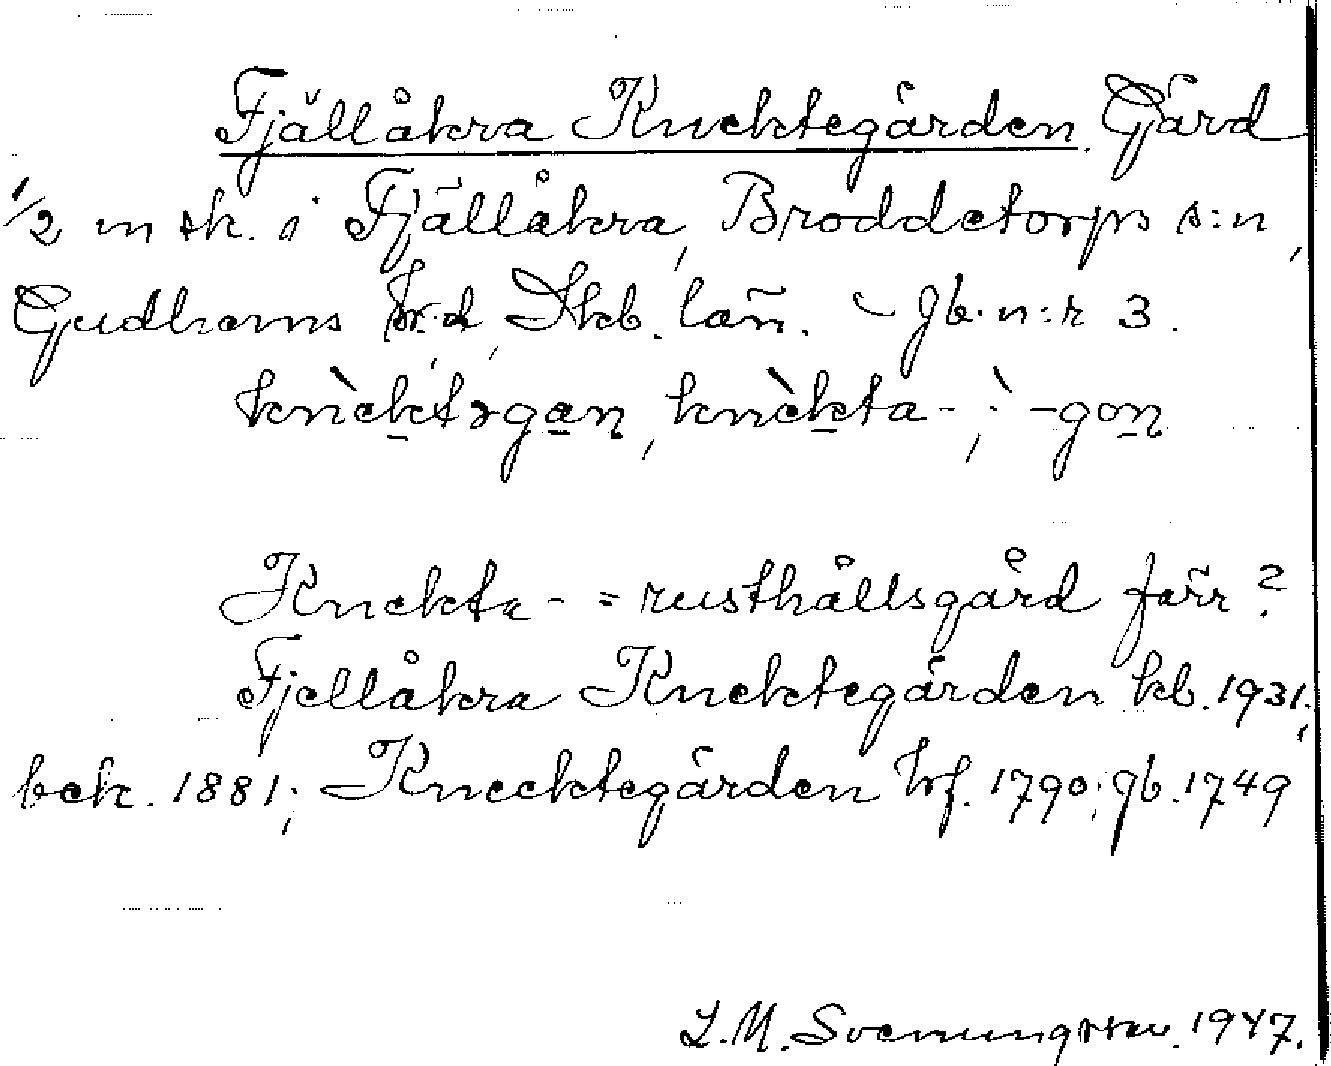 Fjällåkra Knektegården. Gård
1/2 m sk. i Fjällåkra, Broddetorps s:n,
Gudhems hr:d, Skb. län. – Jb. n:r 3.
knèktəgan, knèkta-; -gon
Knekta- = rusthållsgård förr?
Fjellåkra Knektegården kb. 1931;
bek. 1881; Knecktegården hf. 1790; jb. 1749
L.M. Svenungsson. 1947.